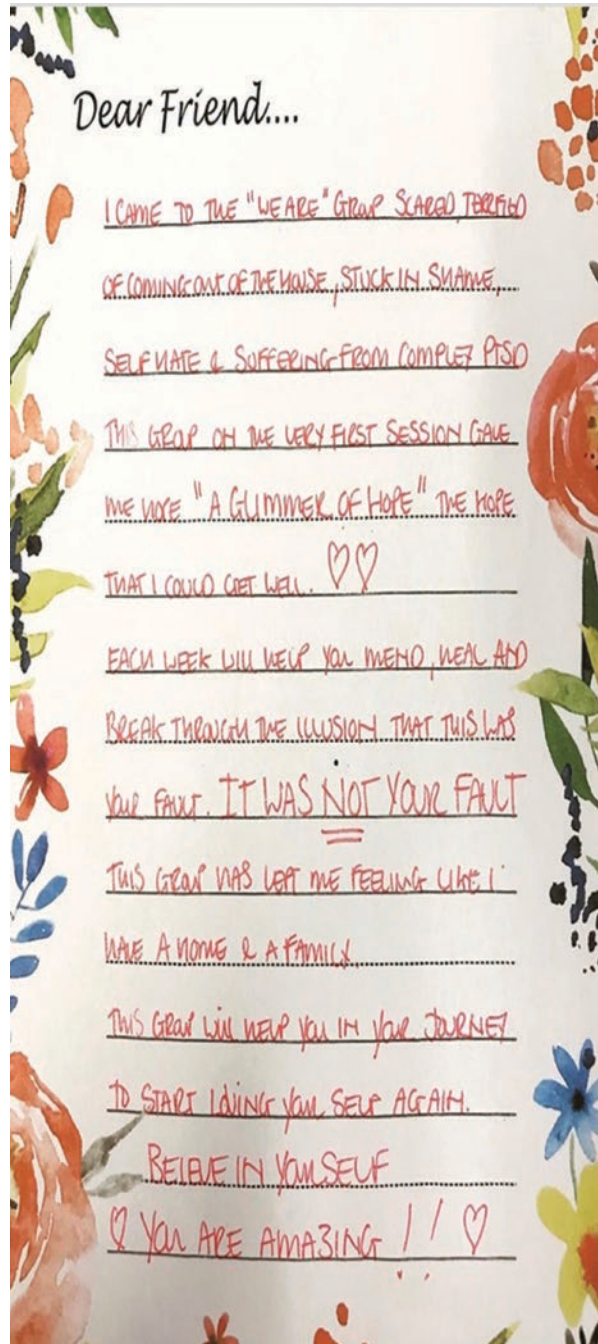 Dear Friend....
I CAME TO THE "WE ARE" GROUP SCARED, TERRIFIED
OF COMING OUT OF THE HOUSE, STUCK IN SHAME,
SELF HATE & SUFFERING FROM COMPLEX PTSD
THIS GROUP ON THE VERY FIRST SESSION GAVE
ME HOPE "A GLIMMER OF HOPE" THE HOPE
THAT I COULD GET WELL. ♡♡
EACH WEEK WILL HELP YOU MEND, HEAL AND
BREAK THROUGH THE ILLUSION THAT THIS WAS
YOUR FAULT. IT WAS NOT YOUR FAULT
THIS GROUP HAS LEFT ME FEELING LIKE I
HAVE A HOME & A FAMILY.
THIS GROUP WILL HELP YOU IN YOUR JOURNEY
TO START LOVING YOUR SELF AGAIN.
BELEVE IN YOURSELF
♡ YOU ARE AMAZING !! ♡